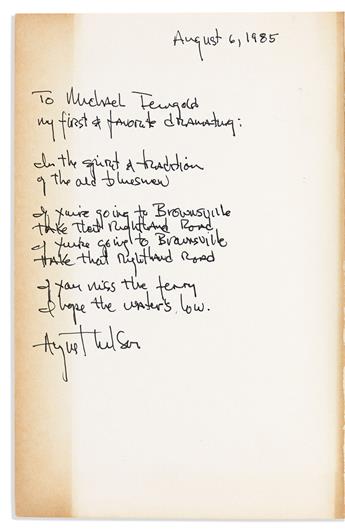 August 6, 1985
To Michael Feingold
my first & favorite dramaturg:
In the spirit & tradition
of the old bluesmen
If you're going to Brownsville
take that Right Hand Road
If you're going to Brownsville
take that Right Hand Road
If you miss the ferry
I hope the water's low.
August Wilson